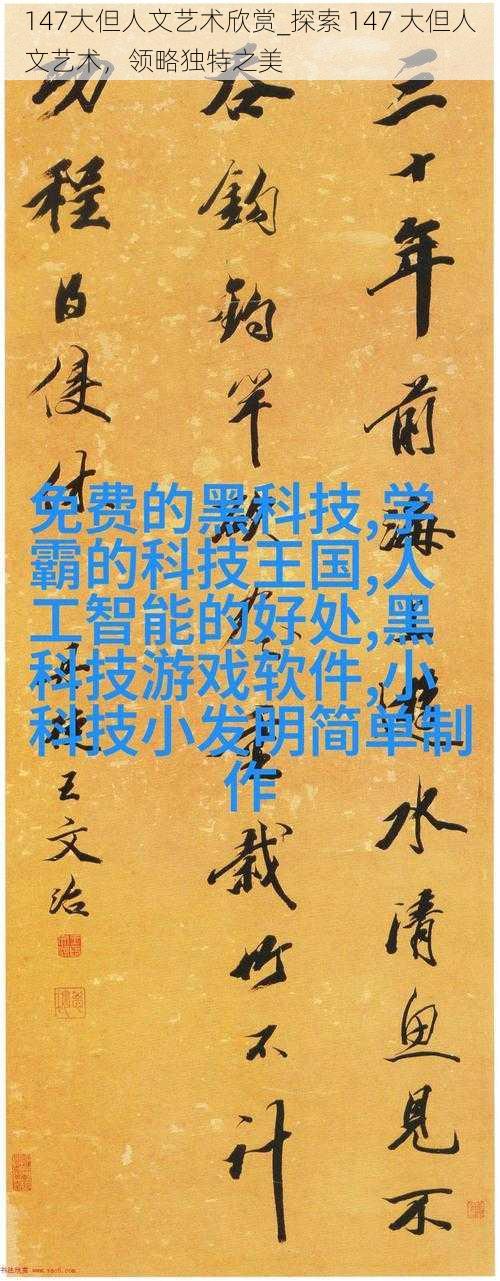 147大但人文艺术欣赏_探索 147 大但人
文艺术，领略独特之美
免费的黑科技,学
霸的科技王国,人
工智能的好处,黑
科技游戏软件,小
科技小发明简单制
作
三十年前海遊水清魚見不
吞鈎釣竿重栽竹不計
功程得便休王文治
书法欣赏 www.yac8.com